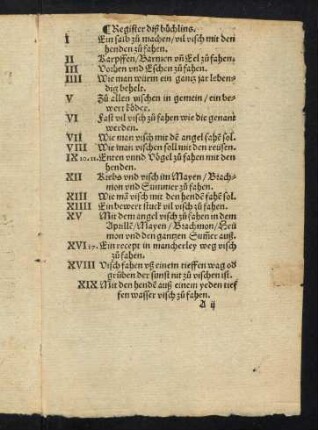 ¶ Register diß büchlins.
I Ein salb zů machen / vil visch mit den
henden zů fahen.
II Karpffen / Barmen vñ Eel zů fahen.
III Vorhen vnd Eschen zů fahen.
IIII Wie man würm ein gantz jar leben-
dig behelt.
V Zů allen vischen in gemein / ein be-
wert köder.
VI Fast vil visch zů fahen wie die genant
werden.
VII Wie man visch mit dē angel fahē sol.
VIII Wie man vischen soll mit den reüsen.
IX 10.11. Enten vnnd Vögel zů fahen mit den
henden.
XII Krebs vnd visch im Mayen / Brach-
mon vnd Summer zů fahen.
XIII Wie mā visch mit den hendē fahē sol.
XIIII Ein bewert stuck vil visch zů fahen.
XV Mit dem angel visch zů fahen in dem
Aprillē / Mayen / Brachmon / Heü
mon vnd den gantzen Sum̄er auß.
XVI 17. Ein recept in mancherley weg visch
zů fahen.
XVIII Visch fahen vß einem tieffen wag od
grůben der sunst nit zů vischen ist.
XIX Mit den hendē auß einem yeden tief
fen wasser visch zů fahen.
A ij